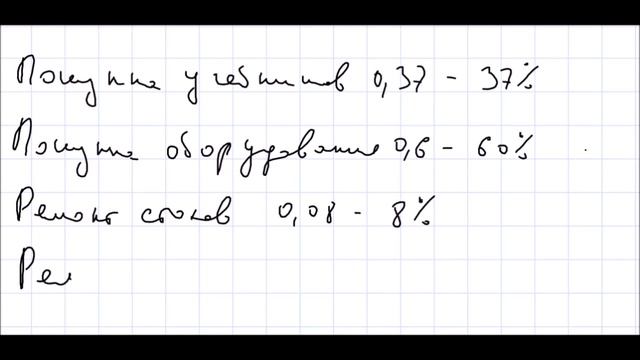 Покупка учебников 0,37 - 37%
Покупка оборудование 0,6 - 60%
Ремонт столов 0,08 - 8%
Рем